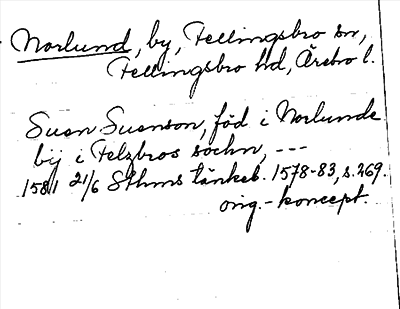 Norlund, by, Fellingsbro sn,
Fellingsbro hd, Örebro l.
Suen Suenson, föd i Norlunde
bÿ i Felzbros sochn, ---
1581 21/6 Sthms tänkeb. 1578-83, s. 269.
orig.-koncept.